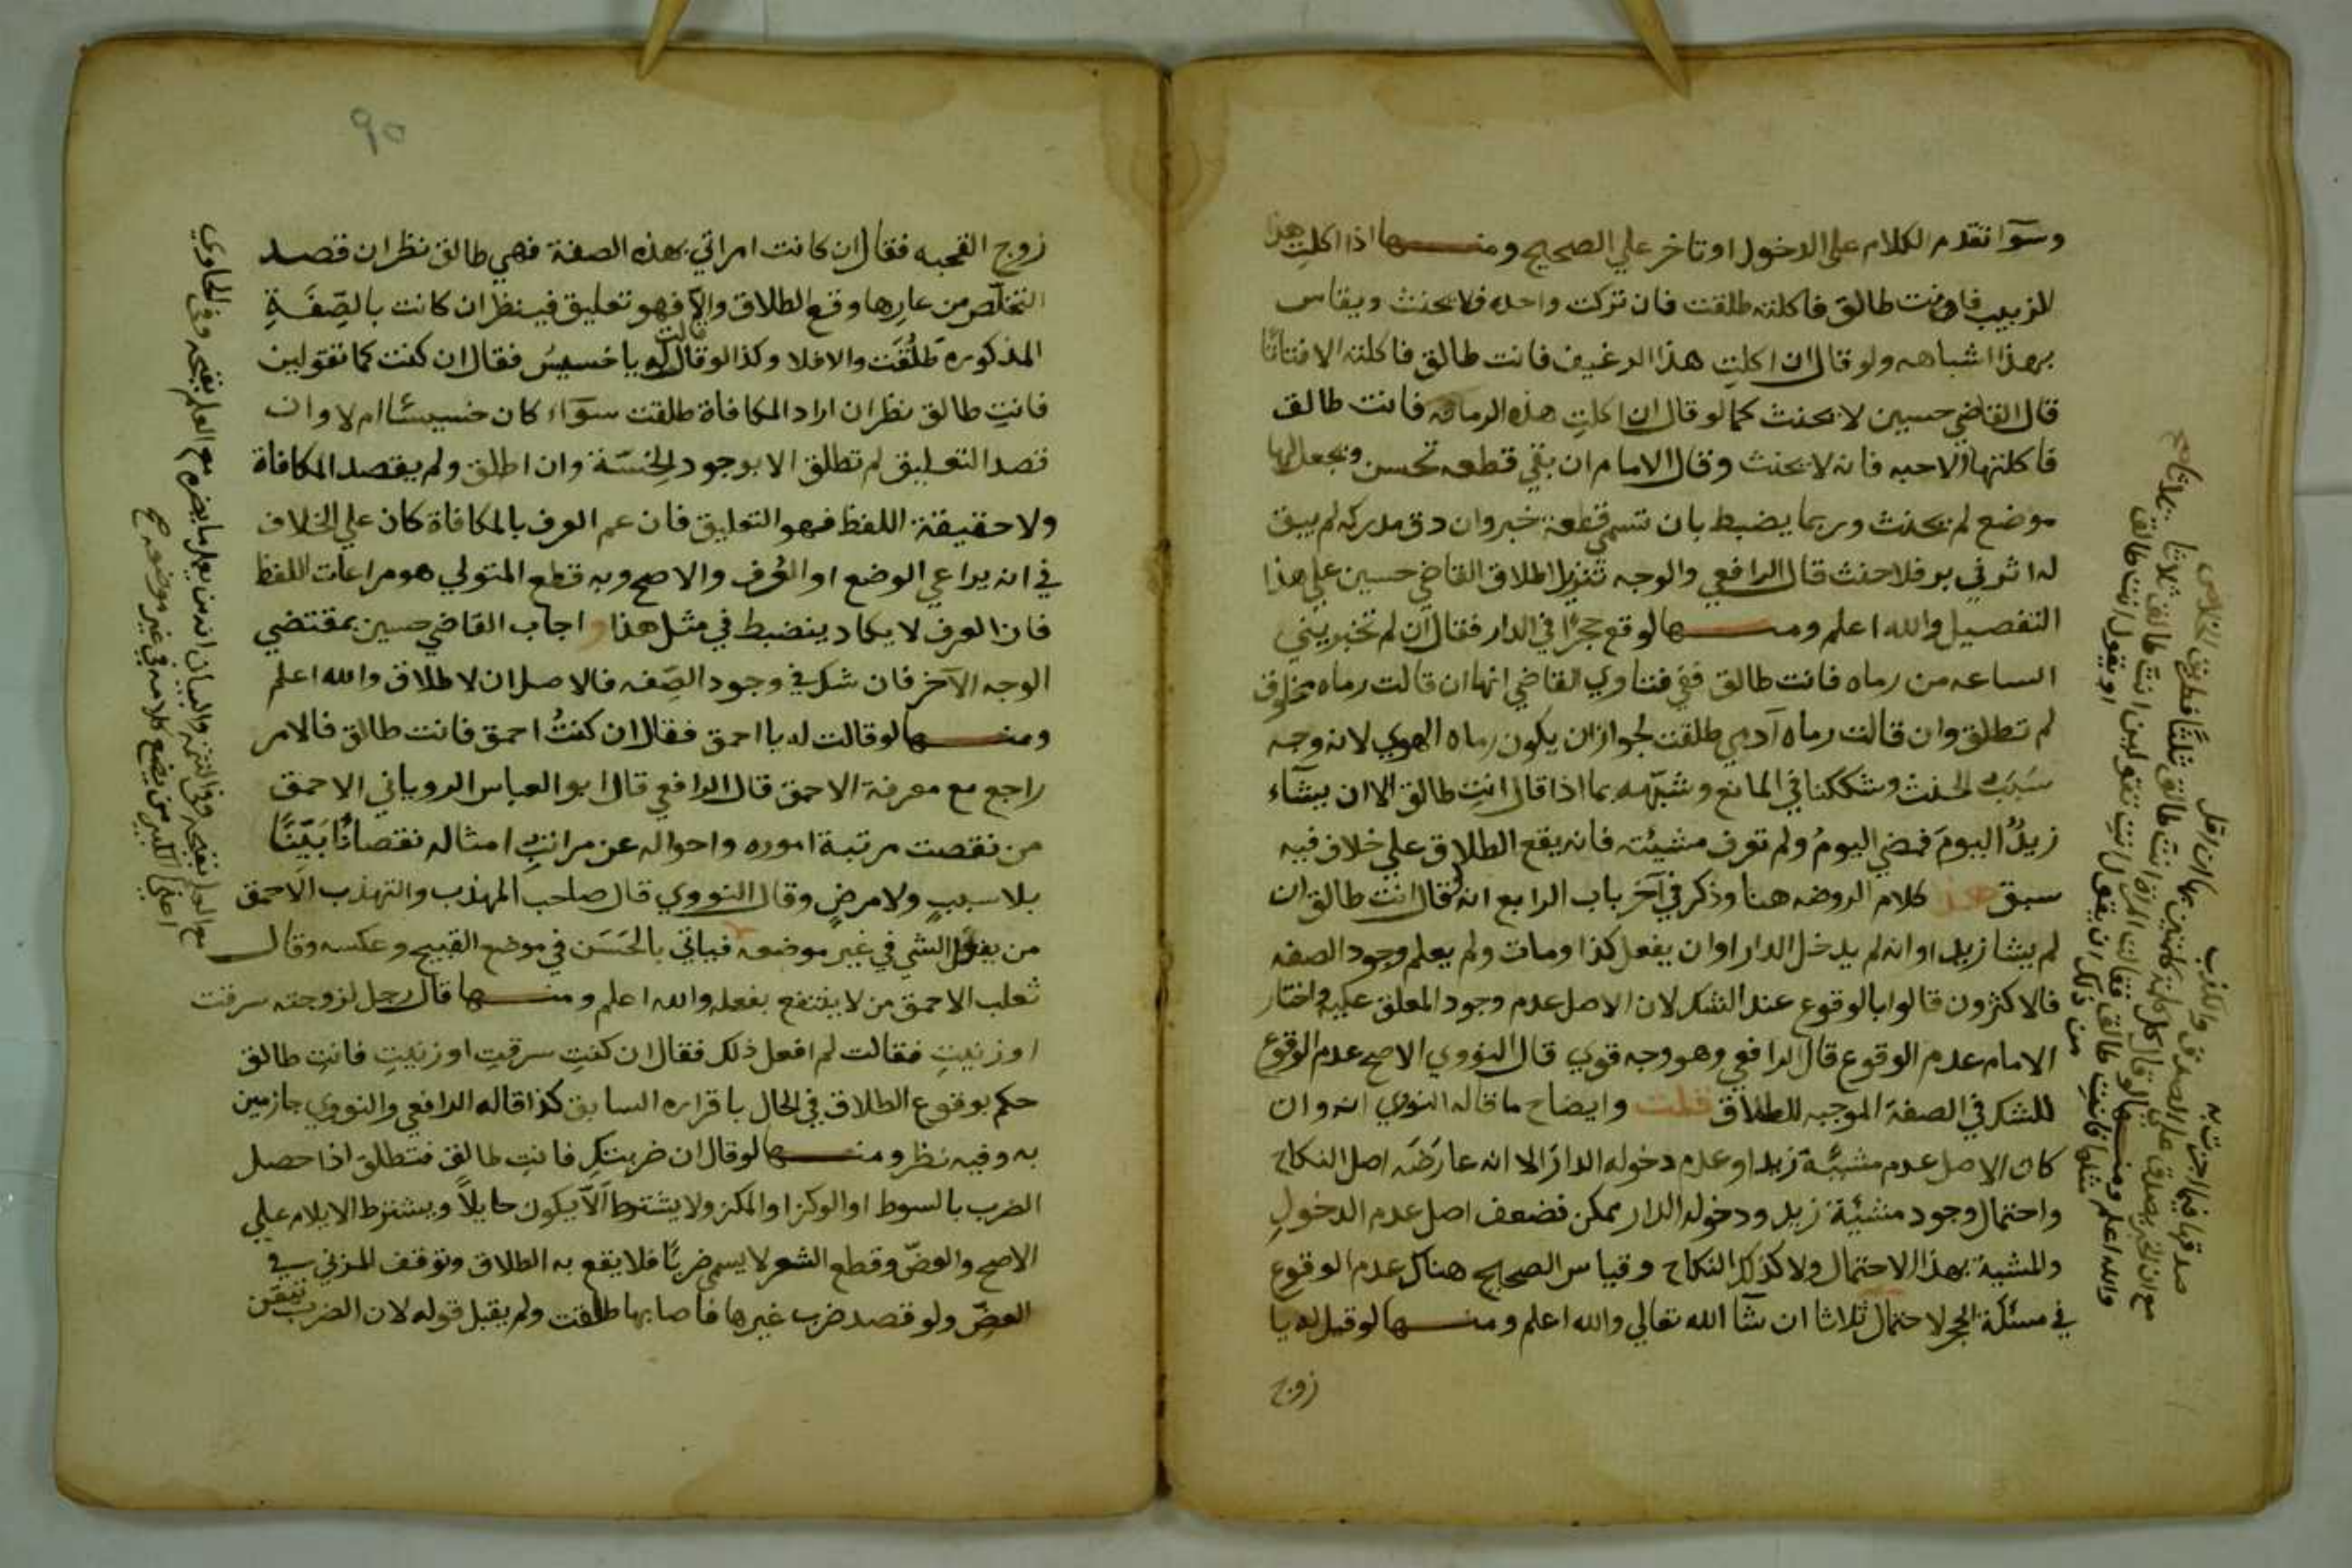 وسوآ تقدم الكلام على الدخول او تاخر علي الصحيح ومنها اذا اكلتِ هذا
الزبيب فانت طالق فاكلته طلقت فان تركت واحده فلا يحنث ويقاس
بهذا اشباهه ولو قال ان اكلتِ هذا الرغيف فانت طالق فاكلته الا فتاتا
قال القاضي حسين لا يحنث كما لو قال ان اكلتِ هذه الرمانه فانت طالق
فاكلتها الا حبه فانه لا يحنث وقال الامام ان بقي قطعه تحسن ويجعل لها
موضع لم يحنث وربما يضبط بان تسمي قطعة خبز وان دق مدركه لم يبق
له اثر في بر فلا حنث قال الرافعي والوجه تنزيل اطلاق القاضي حسين علي هذا
التفصيل والله اعلم ومنها لو وقع حجرًا في الدار فقال ان لم تخبريني
الساعه من رماه فانت طالق ففي فتاوي القاضي انها ان قالت رماه مخلوق
لم تطلق وان قالت رماه آدمي طلقت لجواز ان يكون رماه الهوي لانه وجه
سَبَبُ الحنث وشككنا في المانع وشبّهه بما اذا قال انتِ طالق الا ان يشآء
زيدٌ اليومَ فمضي اليومُ ولم تعرف مشيئته فانه يقع الطلاق علي خلاف فيه
سبق هذا كلام الروضه هنا وذكر في آخر باب الرابع انه لو قال انت طالق ان
لم يشا زيد او انه لم يدخل الدار او ان يفعل كذا ومات ولم يعلم وجود الصفه
فالاكثرون قالوا بالوقوع عند الشك لان الاصل عدم وجود المعلق عليه واختار
الامام عدم الوقوع قال الرافعي وهو وجه قوي قال النووي الاصح عدم الوقوع
للشك في الصفة الموجبه للطلاق قلت وايضاح ما قاله النووي انه وان
كان الاصل عدم مشيئة زيد او عدم دخوله الدارَ الا انه عارَضَه اصل النكاح
واحتمال وجود مشيئة زيد ودخوله الدار ممكن فضعف اصل عدم الدخولِ
والمشية بهذا الاحتمال ولا كذلك النكاح وقياس الصحيح هناك عدم الوقوع
في مسئلة الحجر لاحتمال ثلاثا ان شآ الله تعالي والله اعلم ومنها لو قيل له يا
زوج
صدقها فيما اخبرت به
مع ان الخبر يصدق علي الصدق والكذب
والله اعلم ومنها لو قال كل كلمة كلمتين بها ان لم اقل
مثلها فانتِ طالق فقالت المراة انتَ طالق ثلثًا فطريق الخلاص
من ذلك ان يقول انتِ تقولين انتَ طالق ثلاثا
او يقول انت طالق
٩٥
زوج القحبه فقال ان كانت امراتي بهذه الصفة فهي طالق نظر ان قصد
التخلّص من عارِها وقع الطلاق والاّ فهو تعليق فينظر ان كانت بالصِّفَةِ
المذكوره طَلُقَت والا فلا وكذا لو قالت له يا خسيسُ فقال ان كنت كما تقولين
فانتِ طالق نظر ان اراد المكافاة طلقت سوآء كان خسيسًا ام لا وان
قصد التعليق لم تطلق الا بوجود الخِسّة وان اطلق ولم يقصد المكافاة
ولا حقيقة اللفظ فهو التعليق فان عم العرف بالمكافاة كان علي الخلاف
في انه يراعي الوضع او العُرف والاصح وبه قطع المتولي هو مراعات اللفظ
فان العرف لا يكاد ينضبط في مثل هذا واجاب القاضي حسين بمقتضي
الوجه الآخر فان شك في وجود الصِفه فالاصل ان لا طلاق والله اعلم
ومنها لو قالت له يا احمق فقال ان كنتُ احمق فانت طالق فالامر
راجع مع معرفة الاحمق قال الرافعي قال ابو العباس الروياني الاحمق
من نقصت مرتبة اموره واحواله عن مراتبِ امثاله نقصانًا بَيّنًا
بلا سببٍ ولا مرضٍ وقال النووي قال صاحب المهذب والتهذب الاحمق
من يفعل الشي في غير موضعه فياتي بالحَسَن في موضع القبيح وعكسه وقال
ثعلب الاحمق من لا ينتفع بفعله والله اعلم ومنها قال رجل لزوجته سرقت
او زنيتِ فقالت لم افعل ذلك فقال ان كنتِ سرقتِ او زنيتِ فانتِ طالق
حكم بوقوع الطلاق في الحال باقراره السابق كذا قاله الرافعي والنووي جازمين
به وفيه نظر ومنها لو قال ان ضربتكِ فانتِ طالق فتطلق اذا حصل
الضرب بالسوط او الوكز او اللكز ولا يشترط الاّ يكون حايلاً ويشترط الايلام علي
الاصح والعضّ وقطع الشعر لا يسمي ضربًا فلا يقع به الطلاق وتوقف المزني في
العضّ ولو قصد ضرب غيرها فاصابها طلقت ولم يقبل قوله لان الضرب تيقن
مع العلم بقبحه وفي التتمه والبيان انه من يعلم ما يضره مع العلم بقبحه وفي الحاوي
من يضع كلامه في غير موضعه صح